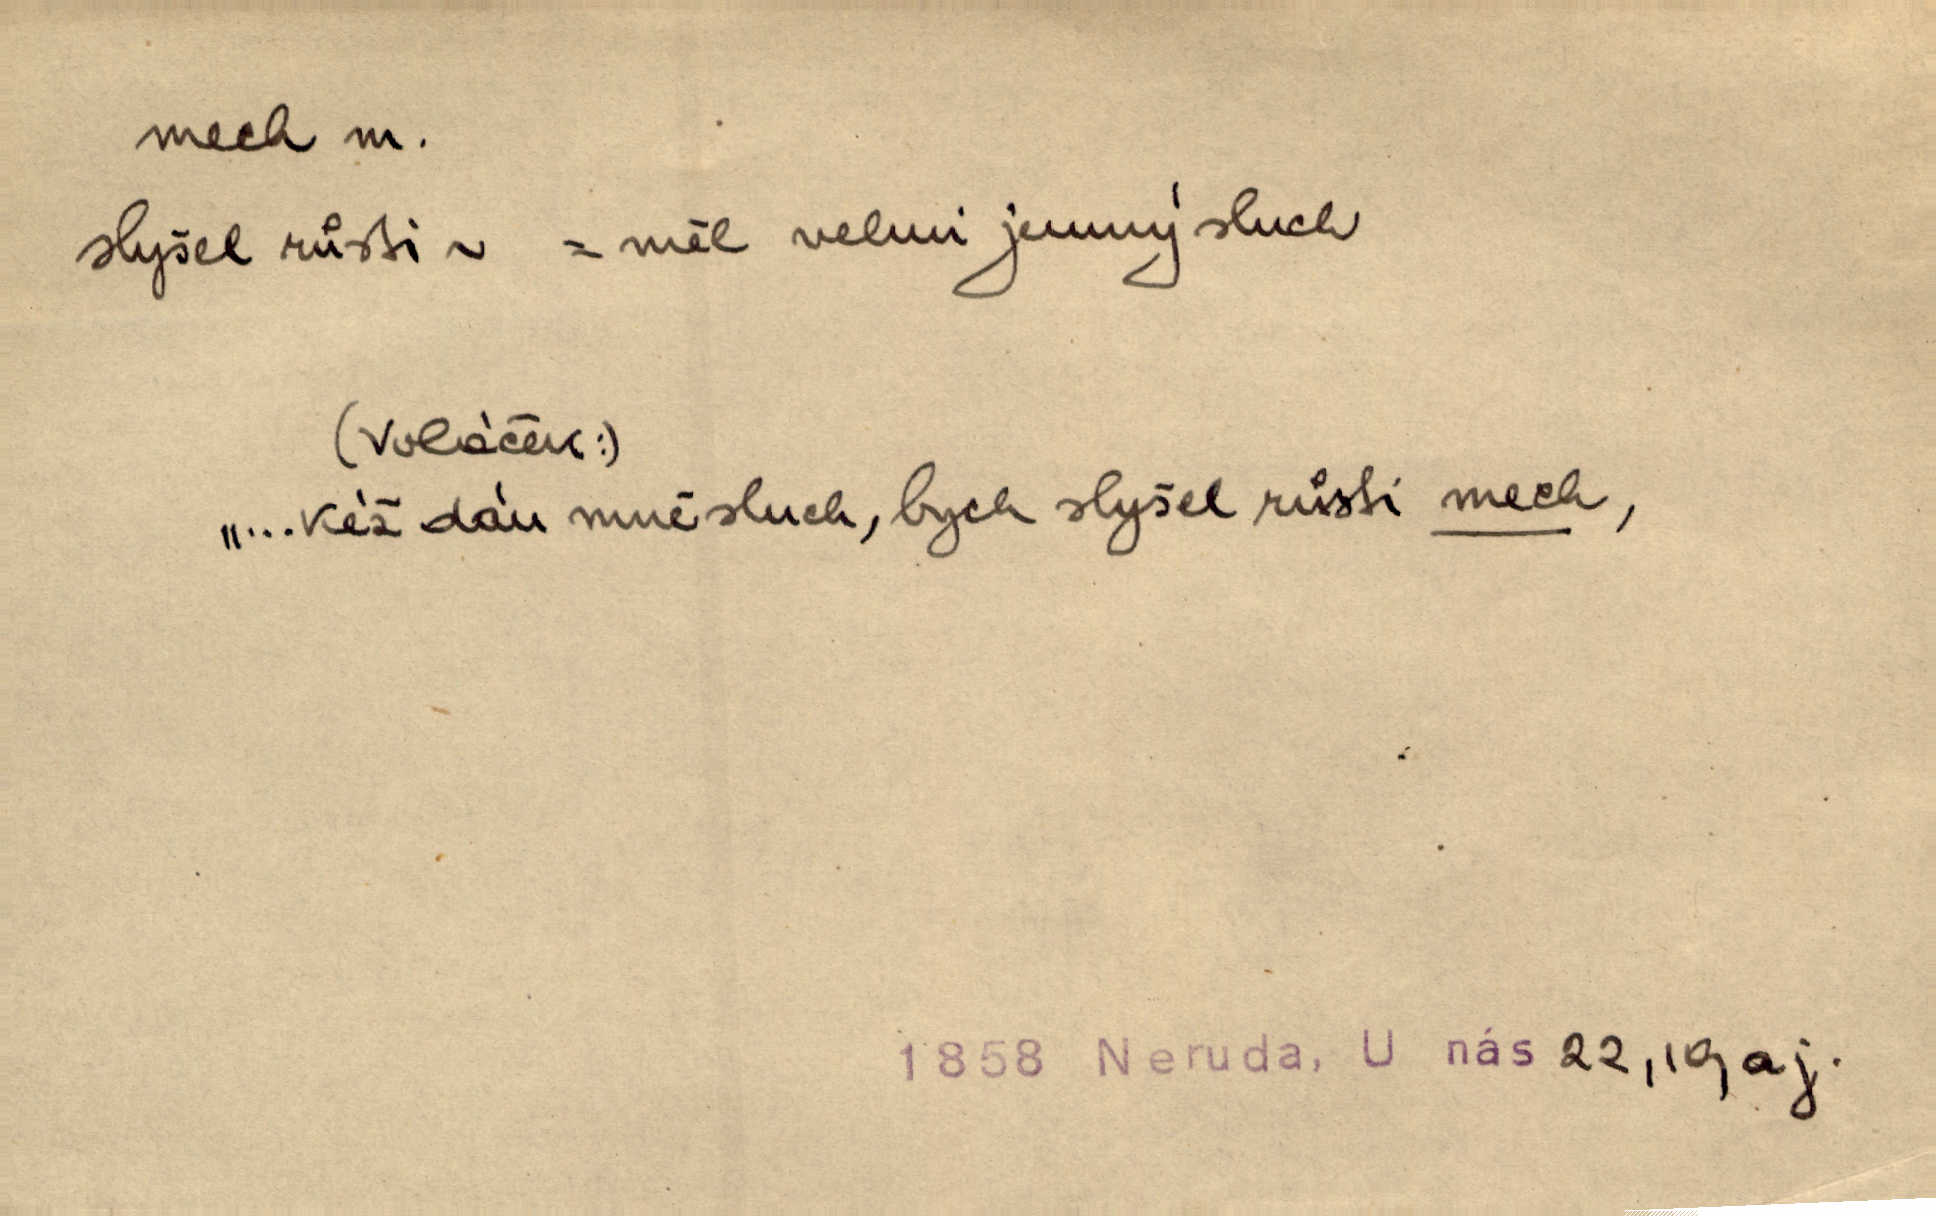 mech m.
slyšel růsti ~ = měl velmi jemný sluch
(Voláček:)
„...Kéž dán mně sluch, bych slyšel růsti mech,
1858 Neruda, U nás 22,19 aj.